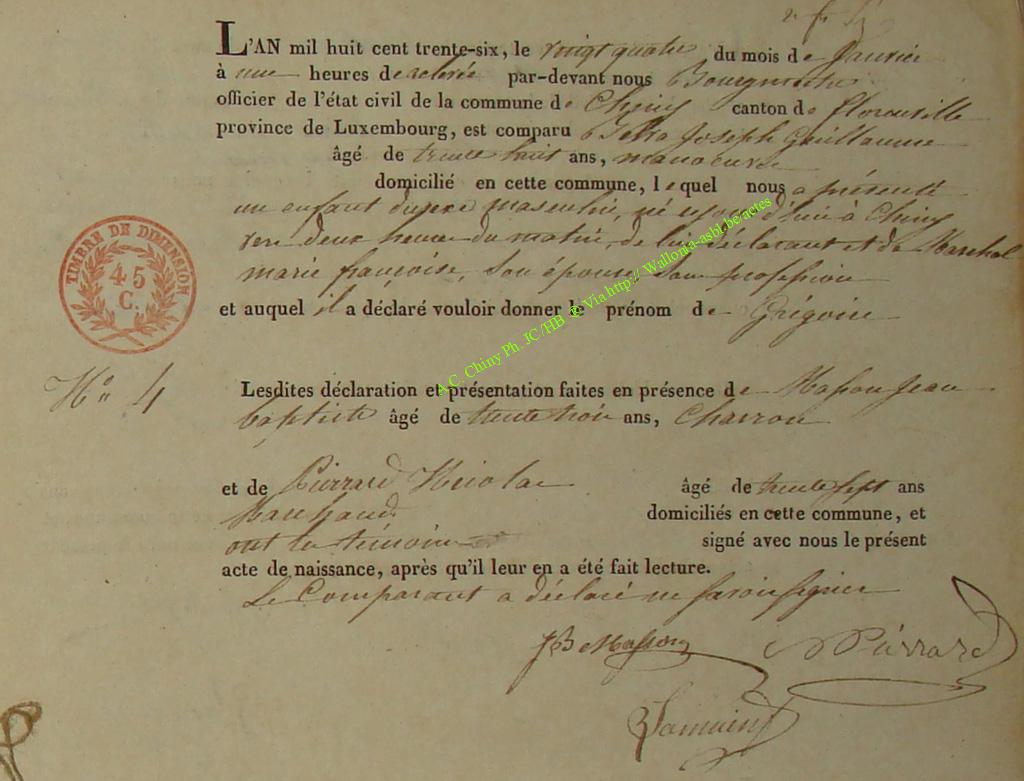 L'AN mil huit cent trente-six, le vingt quatre du mois de Janvier
à une heures de relevée par-devant nous Bourgmestre
officier de l'état civil de la commune de Chiny canton de florenville
province de Luxembourg, est comparu Joseph Guillaume
âgé de trente huit ans, manoeuvre
domicilié en cette commune, lequel nous a présenté
un enfant du sexe masculin, né d'hui à Chiny
vers deux heures du matin, de lui déclarant et de Marechal
marie françoise, son épouse sans profession
et auquel il a déclaré vouloir donner le prénom de Grégoire
TIMBRE DE DIMENSION
45
C.
N° 4
Lesdites déclaration et présentation faites en présence de Masson Jean
baptiste âgé de trente trois ans, Charron
et de Pierrard Nicolas âgé de trente sept ans
Marchand domiciliés en cette commune, et
ont les témoins signé avec nous le présent
acte de naissance, après qu'il leur en a été fait lecture.
Le Comparant a déclaré ne savoir signer
JB Masson
N Piérrard
A.C. Chiny Ph. JC/HB Via http:// Wallonia-asbl.be/actes